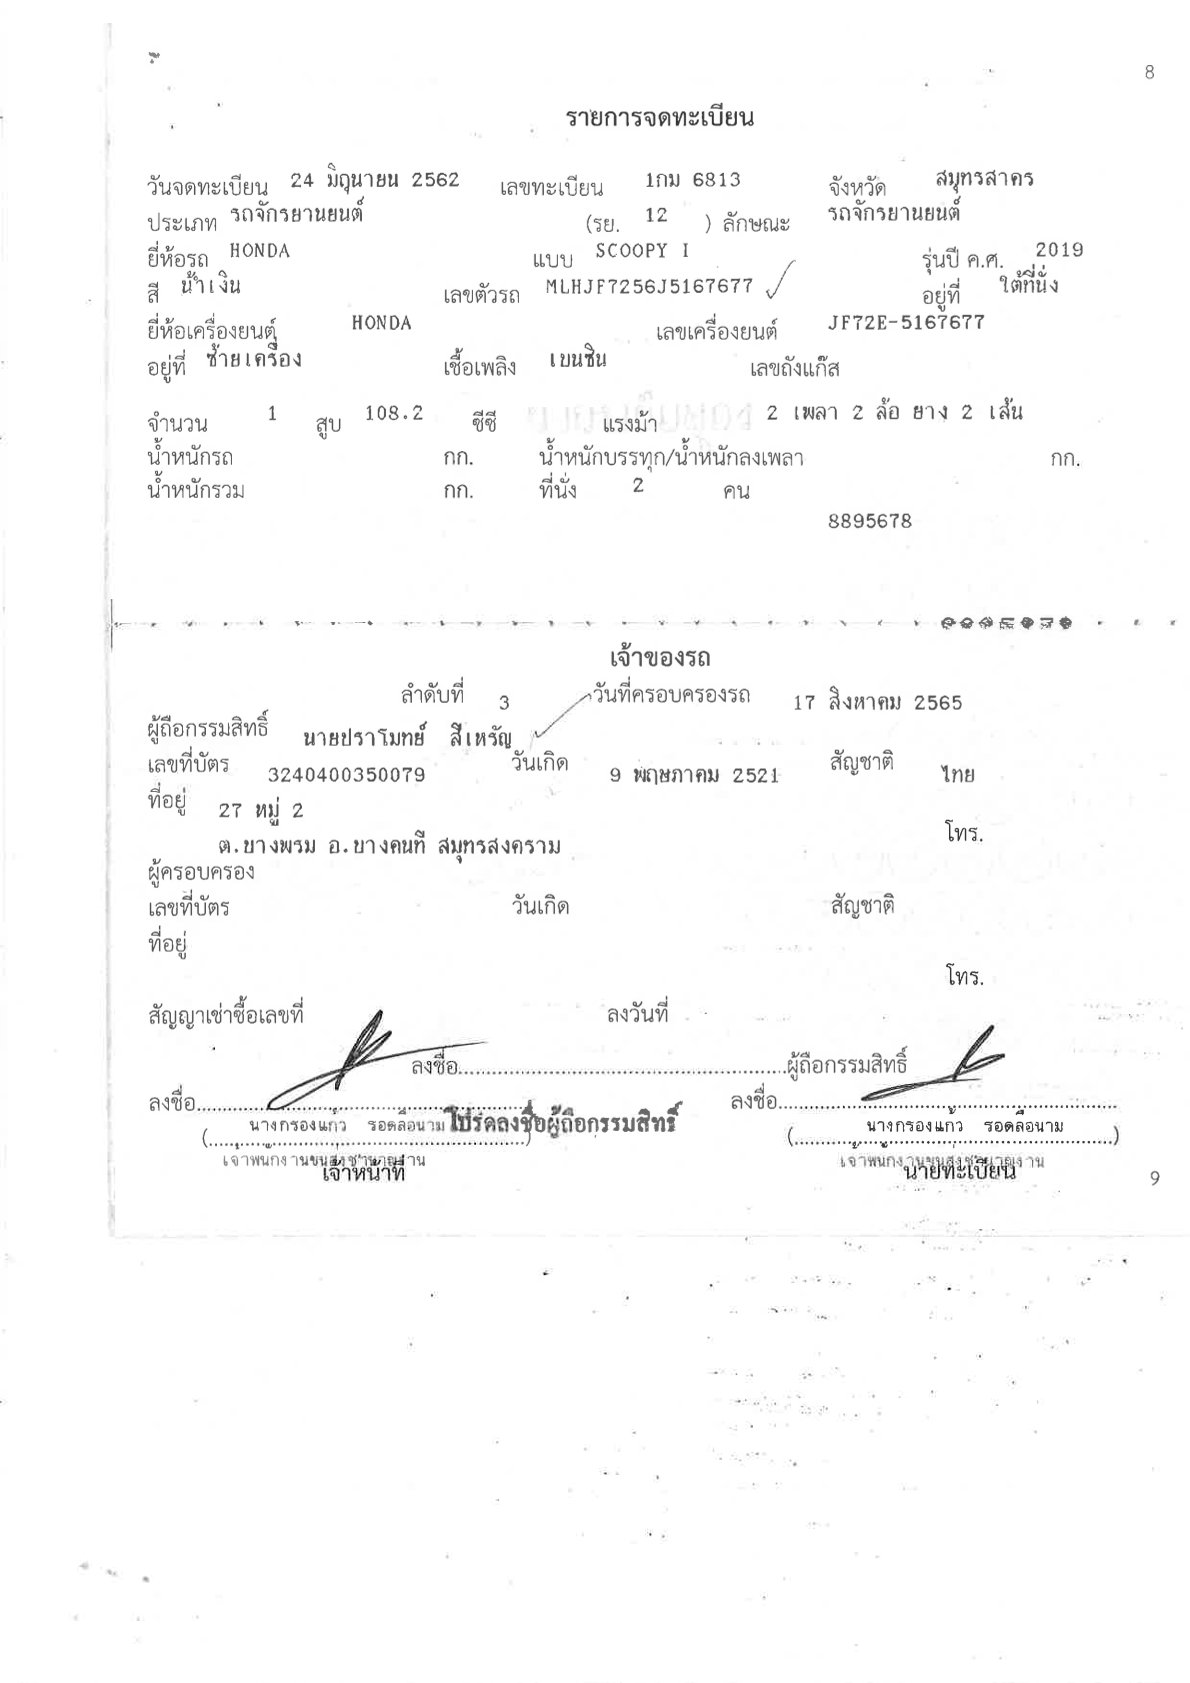 8
รายการจดทะเบียน
วันจดทะเบียน 24 มิถุนายน 2562 เลขทะเบียน 1กม 6813 จังหวัด สมุทรสาคร
ประเภท รถจักรยานยนต์ (รย. 12 ) ลักษณะ รถจักรยานยนต์
ยี่ห้อรถ HONDA แบบ SCOOPY I รุ่นปี ค.ศ. 2019
สี น้ำเงิน เลขตัวรถ MLHJF7256J5167677 อยู่ที่ ใต้ที่นั่ง
ยี่ห้อเครื่องยนต์ HONDA เลขเครื่องยนต์ JF72E-5167677
อยู่ที่ ซ้ายเครื่อง เชื้อเพลิง เบนซิน เลขถังแก๊ส
จำนวน 1 สูบ 108.2 ซีซี แรงม้า 2 เพลา 2 ล้อ ยาง 2 เส้น
น้ำหนักรถ กก. น้ำหนักบรรทุก/น้ำหนักลงเพลา กก.
น้ำหนักรวม กก. ที่นั่ง 2 คน
8895678
เจ้าของรถ
ลำดับที่ 3 วันที่ครอบครองรถ 17 สิงหาคม 2565
ผู้ถือกรรมสิทธิ์ นายปราโมทย์ สีเหรัญ
เลขที่บัตร 3240400350079 วันเกิด 9 พฤษภาคม 2521 สัญชาติ ไทย
ที่อยู่ 27 หมู่ 2
ต.บางพรม อ.บางคนที สมุทรสงคราม โทร.
ผู้ครอบครอง
เลขที่บัตร วันเกิด สัญชาติ
ที่อยู่
โทร.
สัญญาเช่าซื้อเลขที่ ลงวันที่
ลงชื่อ................................................ผู้ถือกรรมสิทธิ์
ลงชื่อ................................................ ลงชื่อ................................................
(นางกรองแก้ว รอดลือนาม) โปรดลงชื่อผู้ถือกรรมสิทธิ์ (นางกรองแก้ว รอดลือนาม)
เจ้าพนักงานขนส่งชำนาญงาน เจ้าพนักงานขนส่งชำนาญงาน
เจ้าหน้าที่ นายทะเบียน
9